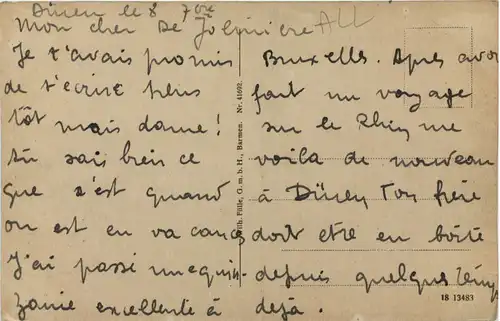 Düren le 8 7bre
Mon cher De Jolinière ALL
Je t'avais promis
de t'écrire plus
tôt mais dame!
tu sais bien ce
que c'est quand
on est en vacances
J'ai passé une quin-
zaine excellente à
Bruxelles. Apres avoir
fait un voyage
sur le Rhin me
voila de nouveau
à Düren Ton frère
doit etre en boite
depuis quelques temps
déjà.
Wilh. Fülle, G. m. b. H., Barmen. Nr. 41692.
18 13483